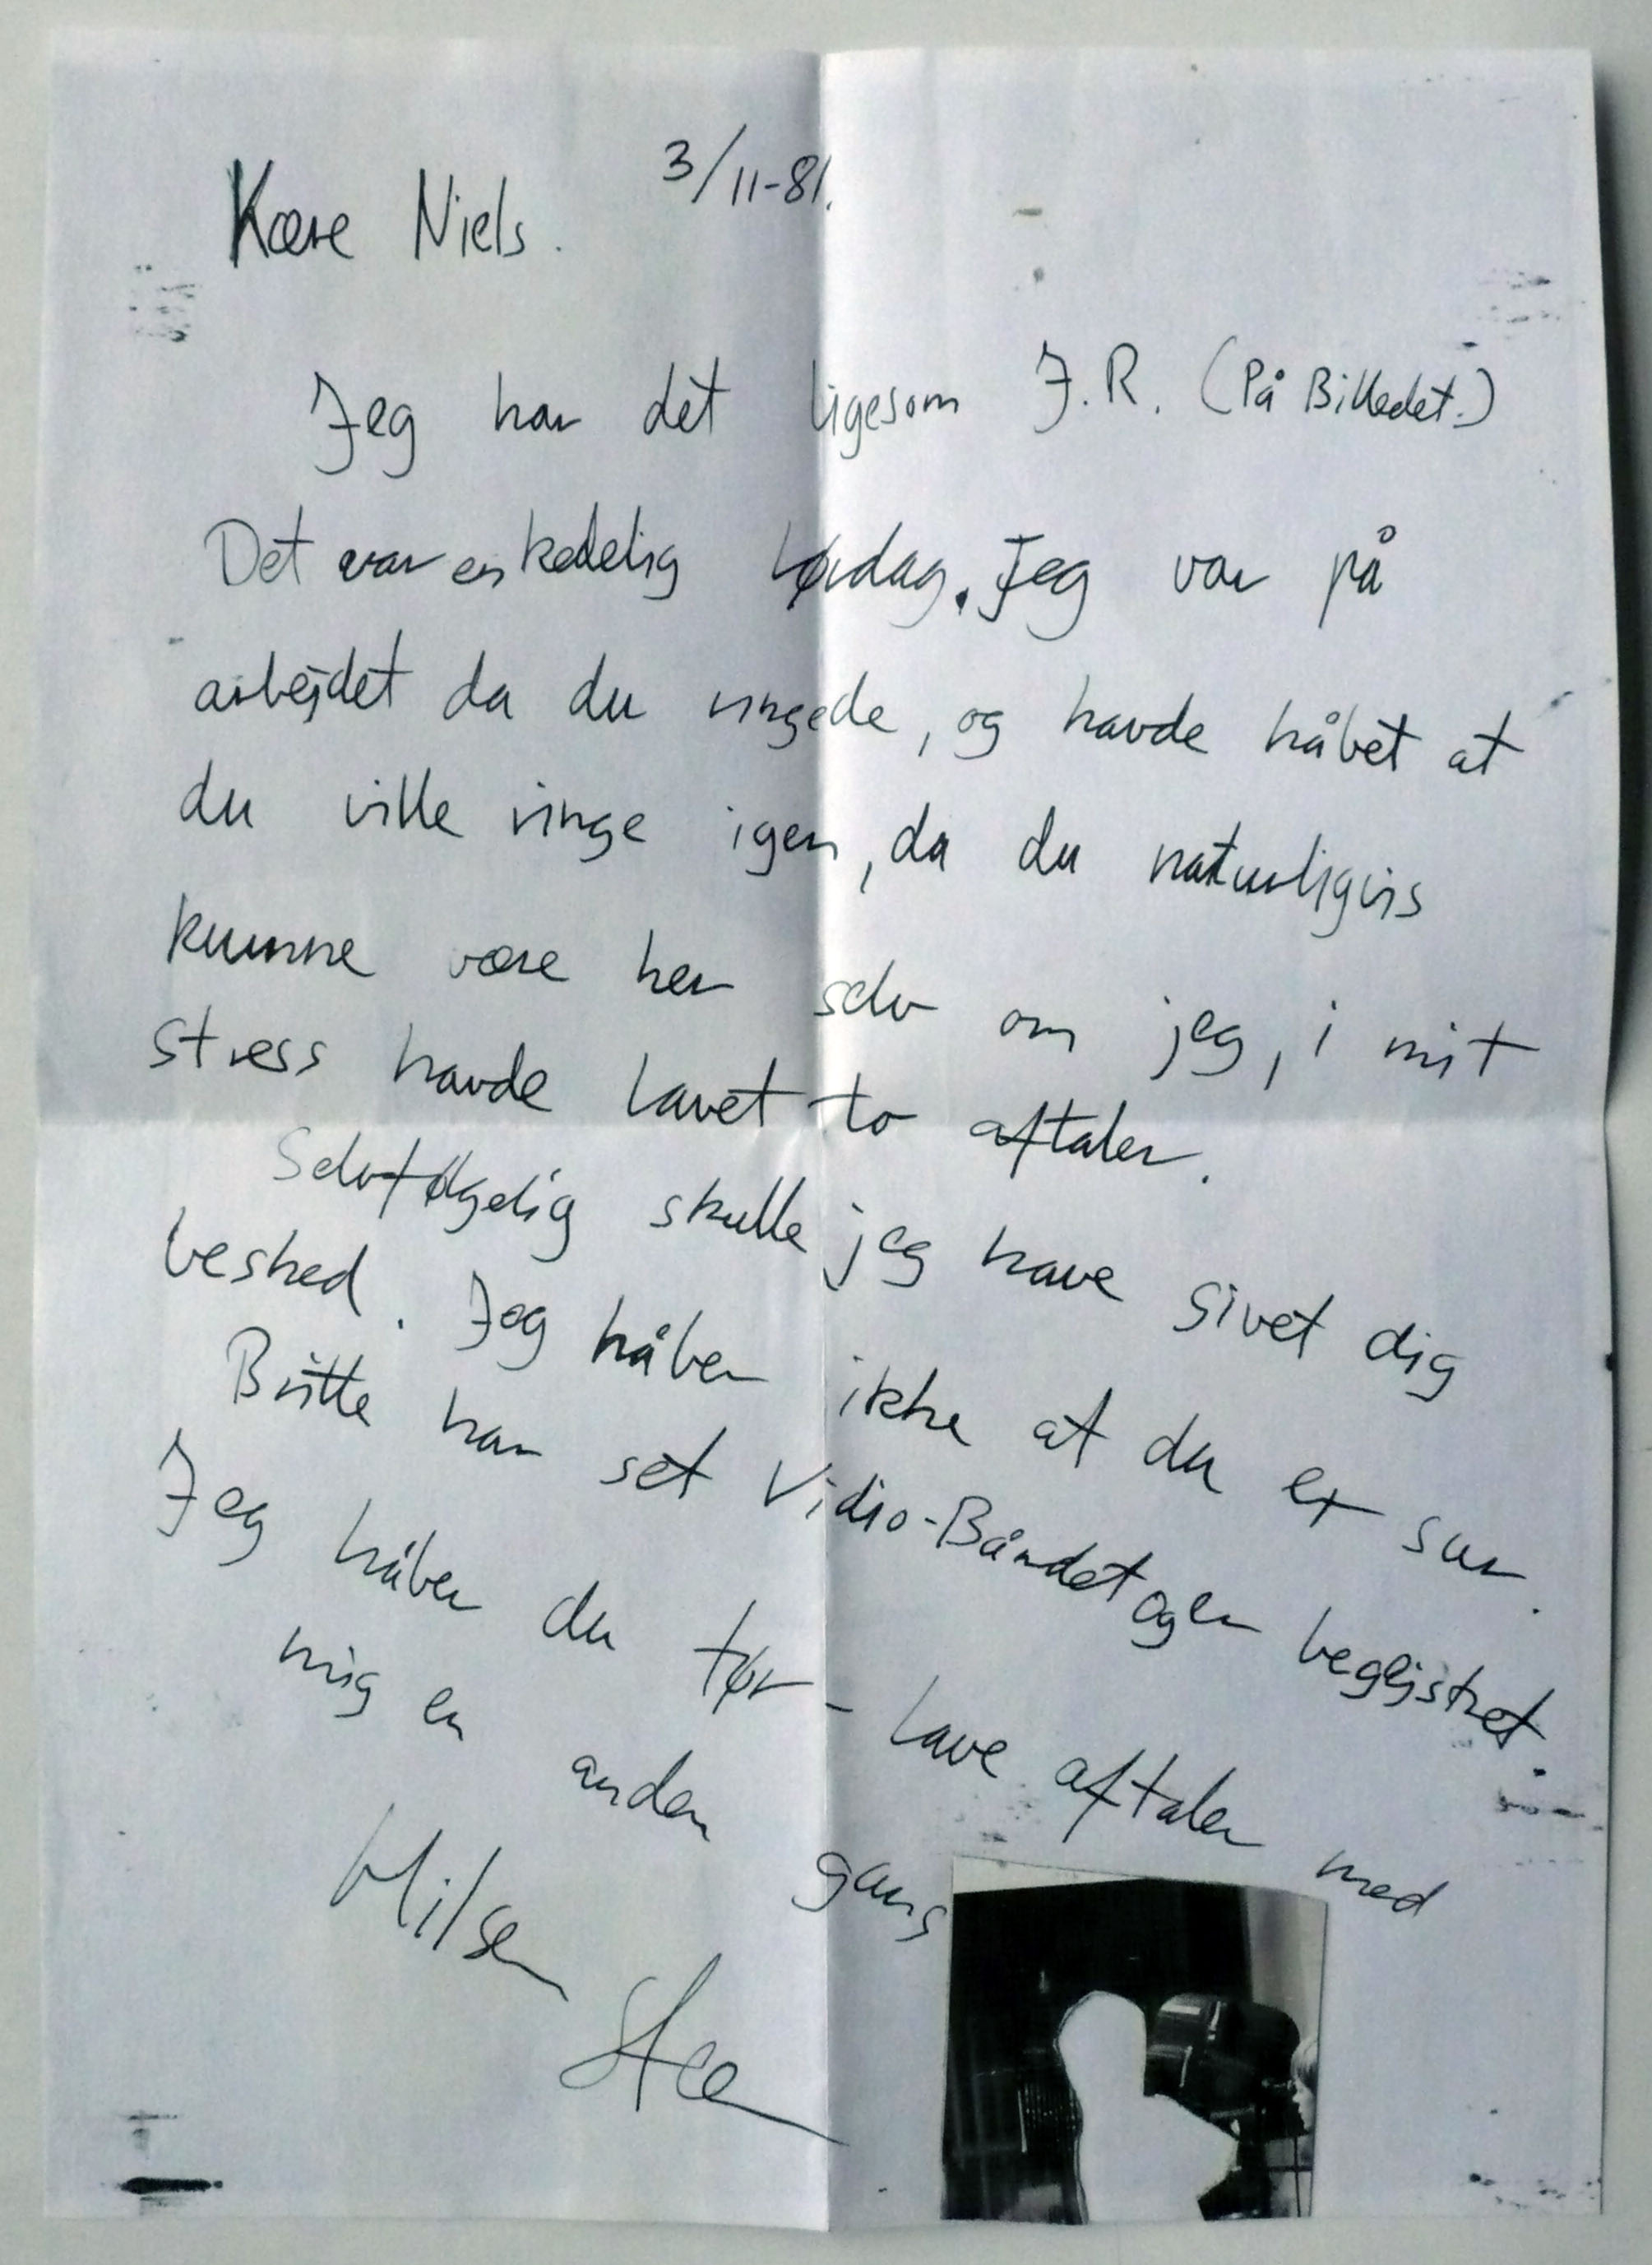 3/11-81.
Kære Niels.
Jeg har det ligesom J.R. (På Billedet.)
Det var en kedelig lørdag. Jeg var på
arbejdet da du ringede, og havde håbet at
du ville ringe igen, da du naturligvis
kunne være her selv om jeg, i mit
stress havde lavet to aftaler.
Selvfølgelig skulle jeg have givet dig
besked. Jeg håber ikke at du er sur.
Britte har set Vidio-Båndet og er begejstret.
Jeg håber du tør - lave aftaler med
mig en anden gang
Hilsen
Steen